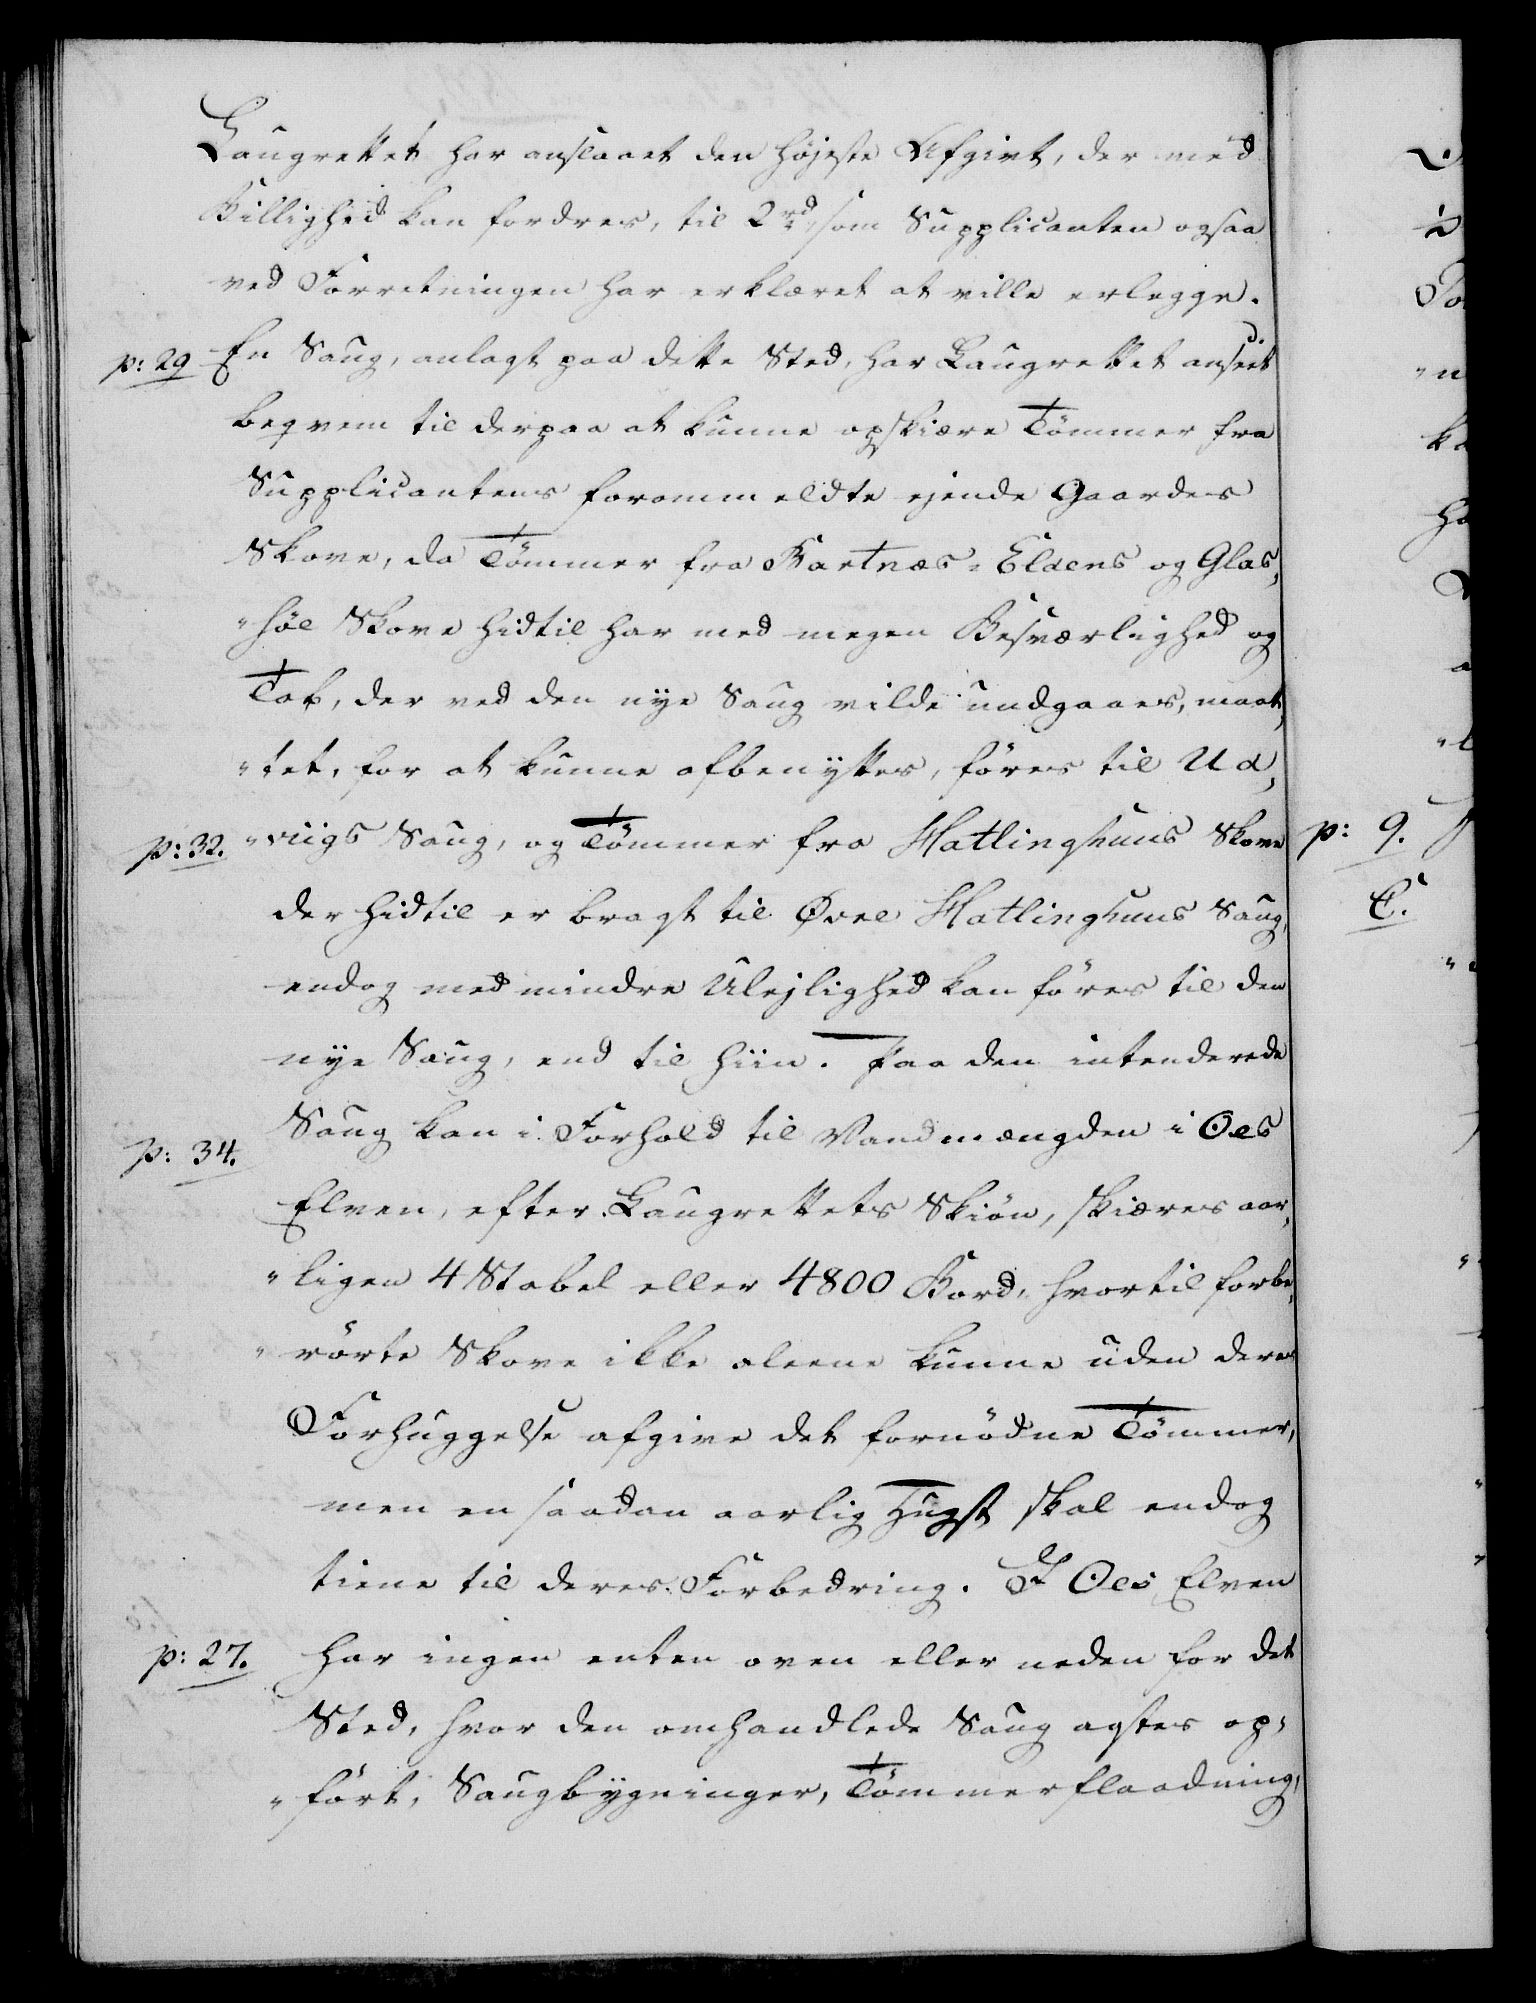 Laugrettet har anslaaet den højeste Afgivt, der med
Billighed kan fordres, til 2 rd, som Supplicanten ogsaa
ved Forretningen har erklæret at ville erlegge.
p: 29 En Saug, anlagt paa dette Sted, har Laugrettet anseet
beqvem til derpaa at kunne opskiære Tömmer fra
Supplicantens forommeldte ejende Gaardes
Skove, da Tömmer fra Bartnæs- Eldens og Glas,
"höl Skove hidtil har med megen Besværlighed og
Tab, der ved den nye Saug vilde undgaaes, maat,
"tet, for at kunne afbenyttes, föres til Ud,
p: 32. "viigs Saug, og Tömmer fra Hatlinghuus Skove
der hidtil er bragt til Övre Hatlinghuus Saug,
endog med mindre Ulejlighed kan föres til den
nye Saug, end til hiin. Paa den intenderede
p: 34. Saug kan i Forhold til Vandmængden i Oes
Elven, efter Laugrettets Skiön, skiæres aar,
"ligen 4 Stabel eller 4800 Bord, hvortil forbe,
"rörte Skove ikke aleene kunne uden deres
Forhuggelse afgive det fornödne Tömmer,
men en saadan aarlig Hugst skal endog
tiene til deres Forbedring. I Oes Elven
p: 27. har ingen enten oven eller neden for det
Sted, hvor den omhandlede Saug agtes op,
"fört, Saugbygninger, Tömmerflaadning,
p: 9.
C.